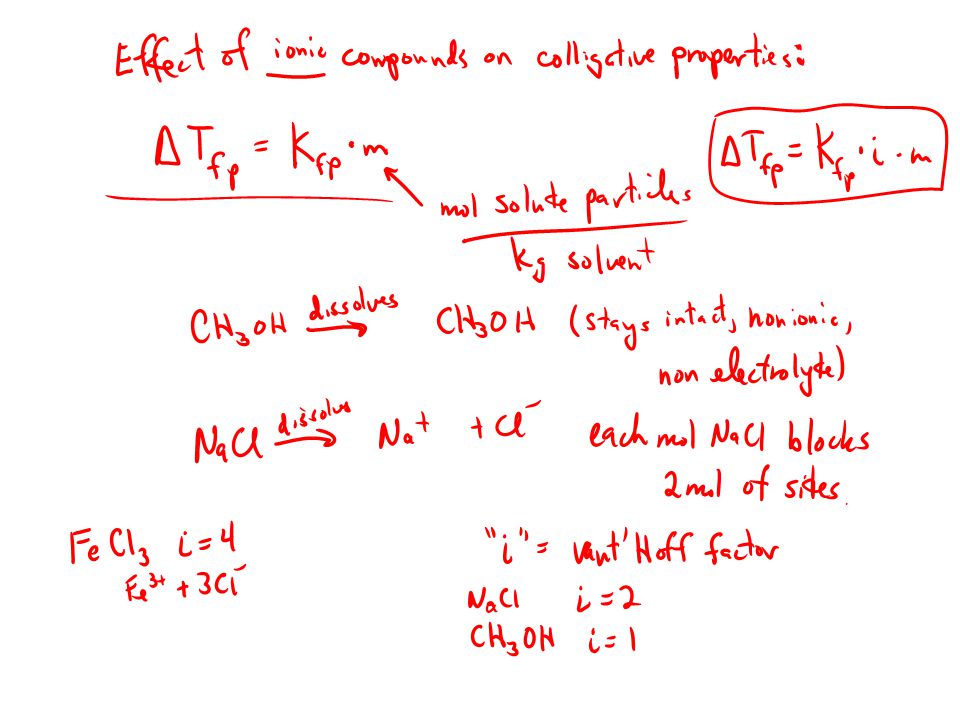 Effect of ionic compounds on colligative properties:
ΔT_fp = K_fp · m
ΔT_fp = K_fp · i · m
mol solute particles
kg solvent
CH₃OH dissolves → CH₃OH (stays intact, nonionic,
non electrolyte)
NaCl dissolves → Na⁺ + Cl⁻ each mol NaCl blocks
2 mol of sites.
FeCl₃ i=4
Fe³⁺ + 3Cl⁻
"i" = vant' Hoff factor
NaCl i=2
CH₃OH i=1